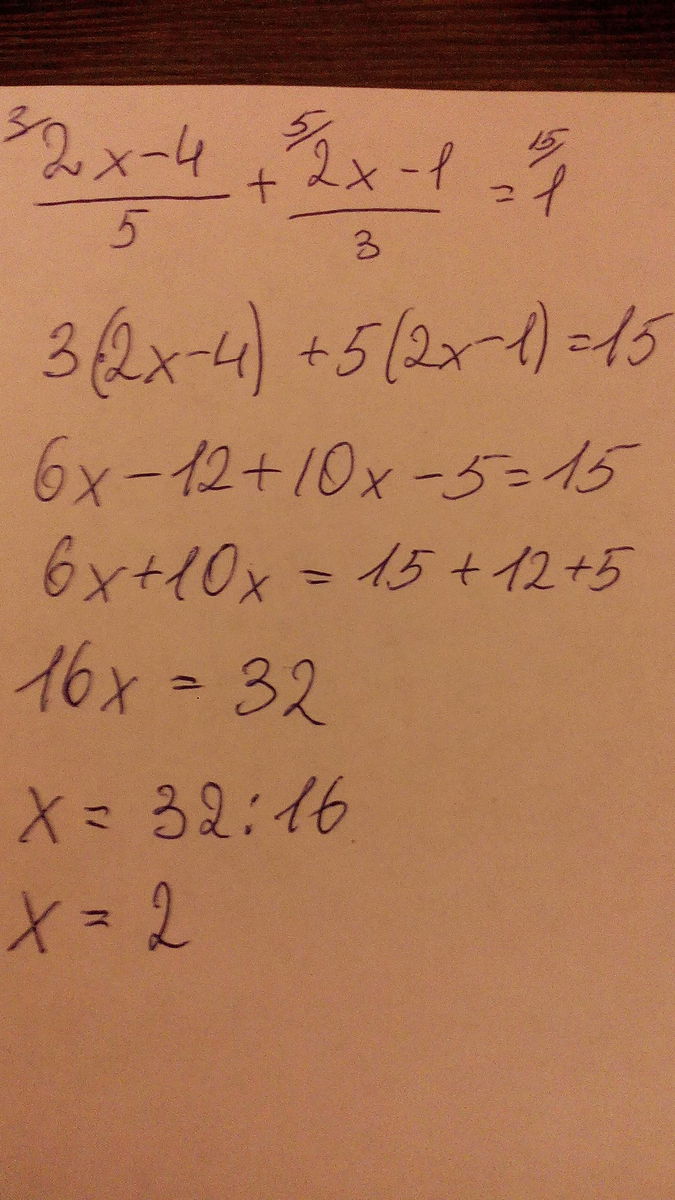 3/ 2x-4 / 5 + 5/ 2x-1 / 3 = 15/ 1
3(2x-4) +5(2x-1)=15
6x-12+10x-5=15
6x+10x = 15+12+5
16x = 32
x = 32:16
x = 2